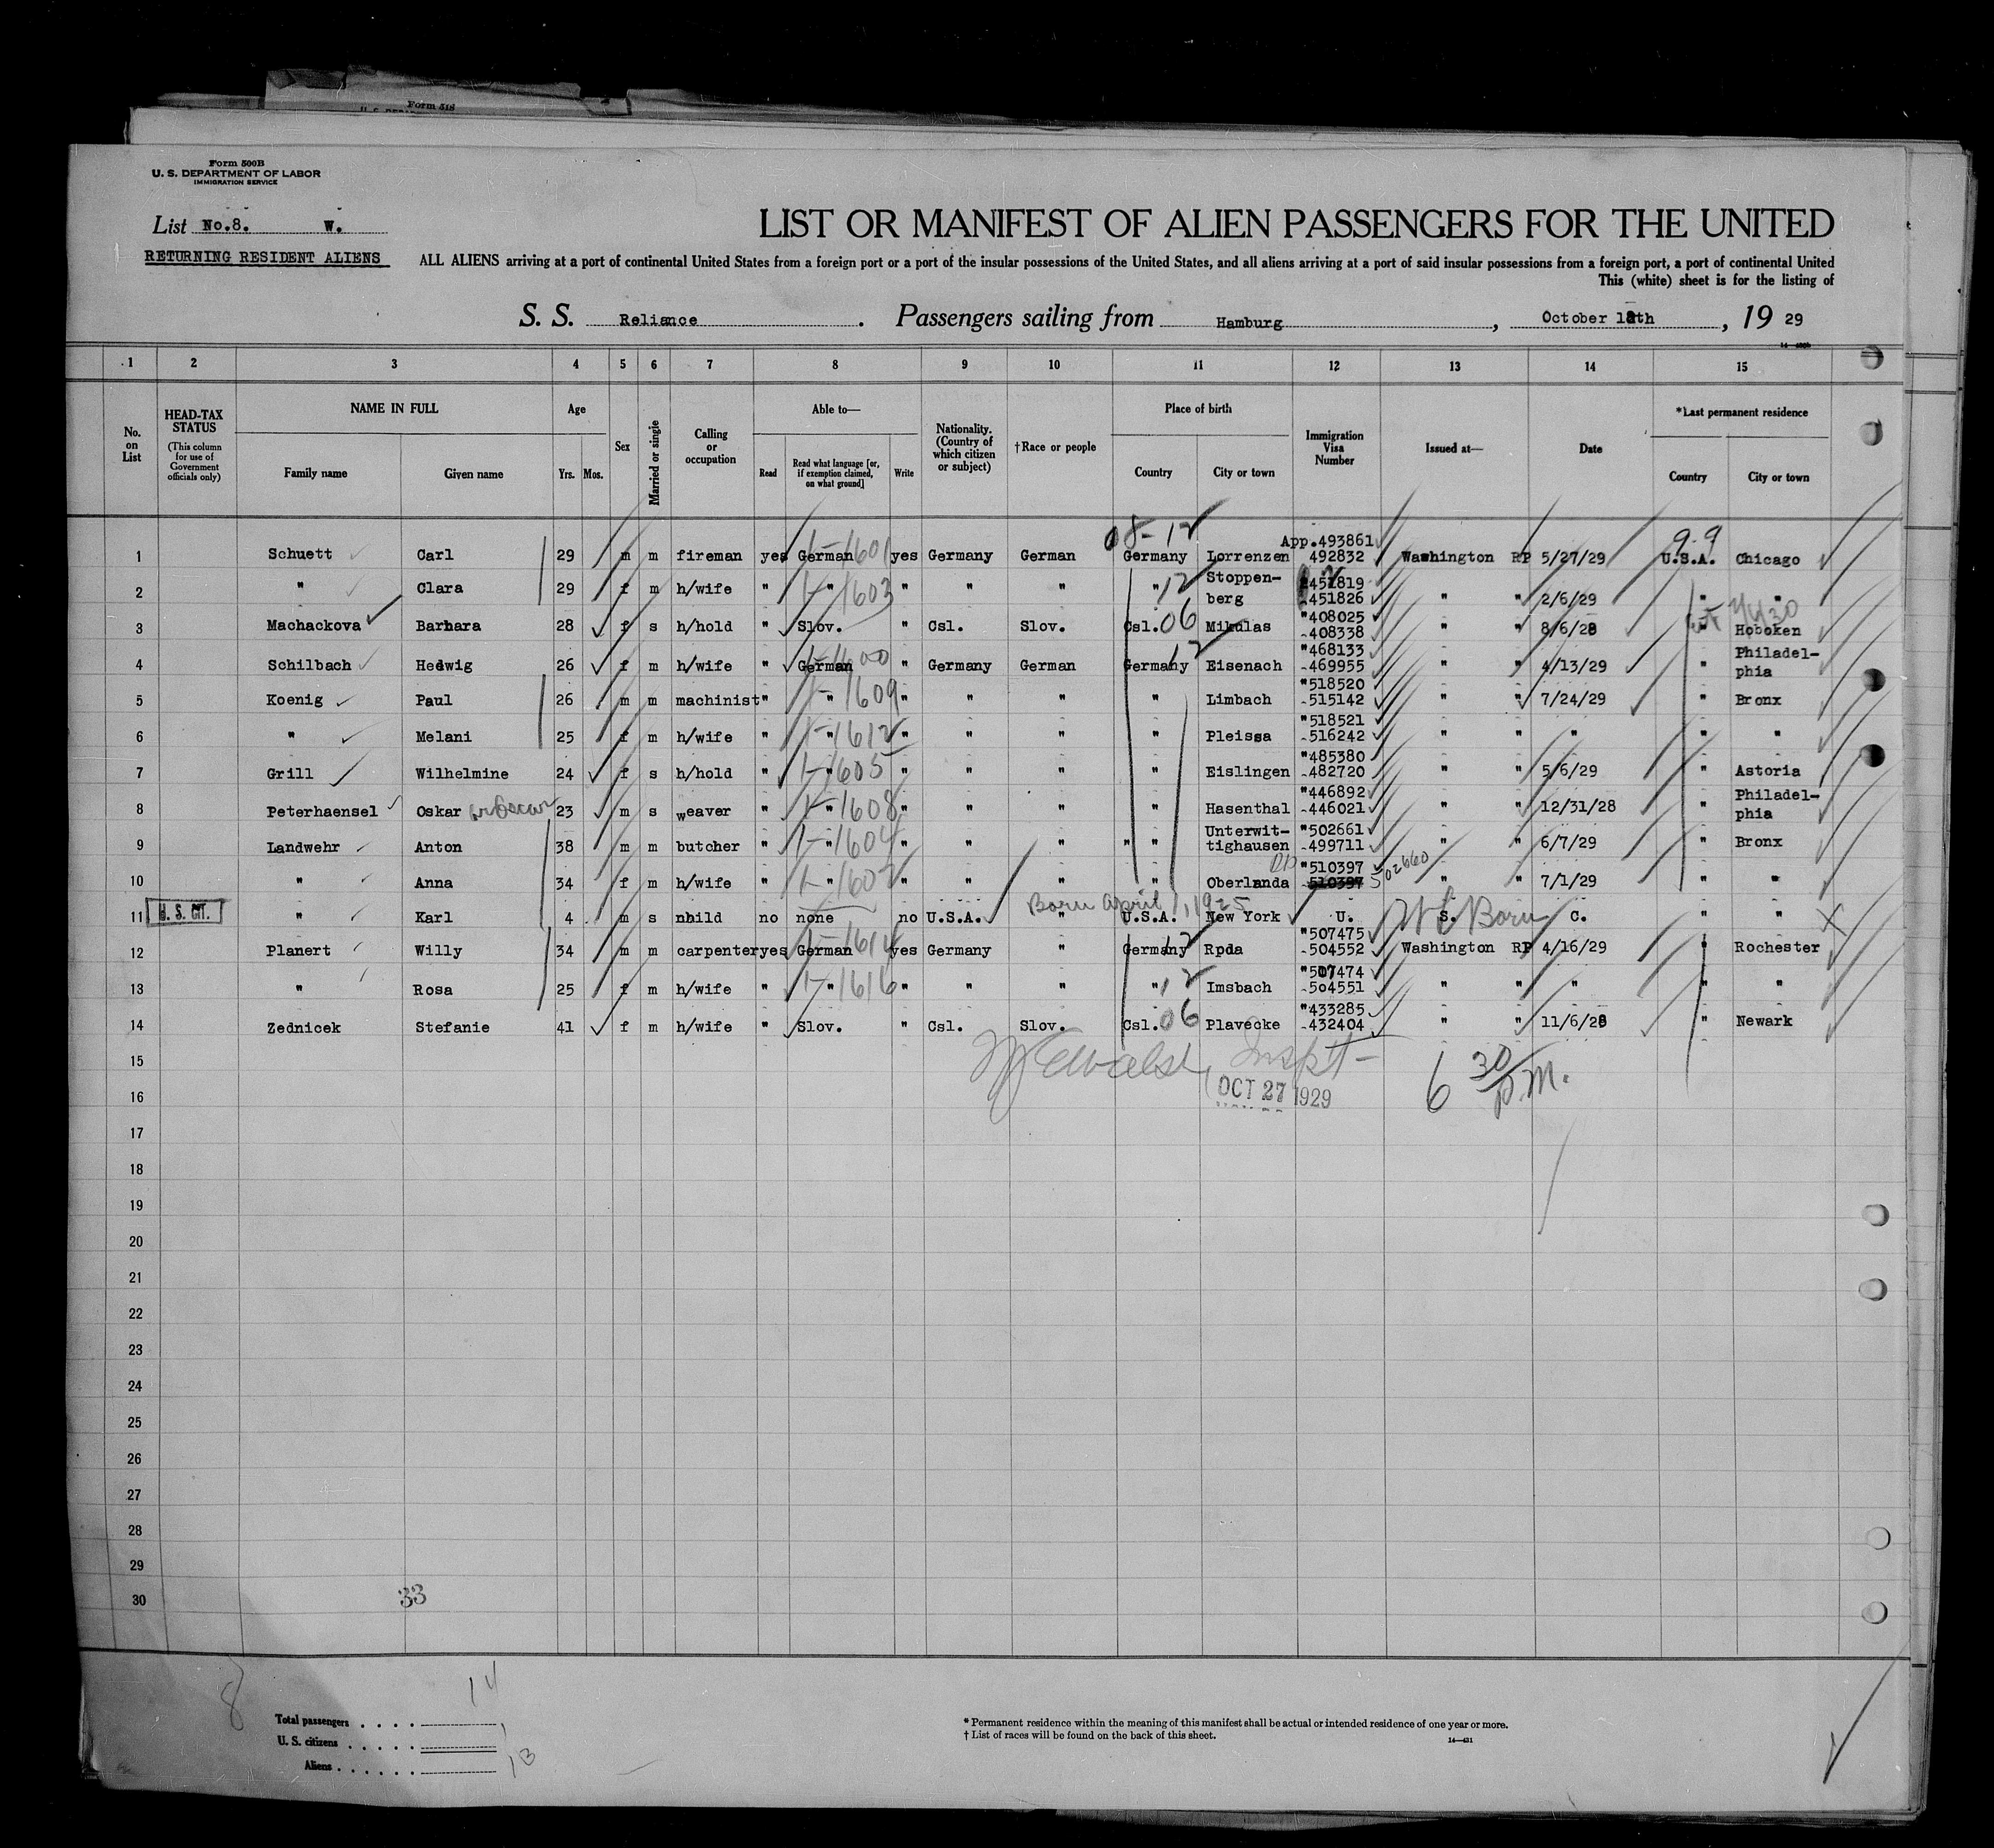 Form 518
Form 500B
U. S. DEPARTMENT OF LABOR
IMMIGRATION SERVICE
List No.8. W.
RETURNING RESIDENT ALIENS
LIST OR MANIFEST OF ALIEN PASSENGERS FOR THE UNITED
ALL ALIENS arriving at a port of continental United States from a foreign port or a port of the insular possessions of the United States, and all aliens arriving at a port of said insular possessions from a foreign port, a port of continental United
This (white) sheet is for the listing of
S. S. Reliance. Passengers sailing from Hamburg, October 18th, 19 29
1 2 3 4 5 6 7 8 9 10 11 12 13 14 15
No. on List
HEAD-TAX STATUS (This column for use of Government officials only)
NAME IN FULL Family name Given name
Age Yrs. Mos.
Sex
Married or single
Calling or occupation
Able to— Read Read what language [or, if exemption claimed, on what ground] Write
Nationality. (Country of which citizen or subject)
†Race or people
Place of birth Country City or town
Immigration Visa Number
Issued at—
Date
*Last permanent residence Country City or town
08-12 9-9
1 Schuett Carl 29 m m fireman yes German 1-1601 yes Germany German Germany Lorrenzen App.493861 492832 Washington RP 5/27/29 U.S.A. Chicago
2 " Clara 29 f m h/wife " " 1-1603 " " " " 12 Stoppen-berg 451819 451826 " " 2/6/29 " "
3 Machackova Barhara 28 f s h/hold " Slov. " Csl. Slov. Csl. 06 Mikulas "408025 -408338 " " 8/6/28 " Hoboken
4 Schilbach Hedwig 26 f m h/wife " German 1-1600 " Germany German Germany 12 Eisenach "468133 -469955 " " 4/13/29 " Philadel-phia
5 Koenig Paul 26 m m machinist " " 1-1609 " " " " Limbach "518520 -515142 " " 7/24/29 " Bronx
6 " Melani 25 f m h/wife " " 1-1612 " " " " Pleissa "518521 -516242 " " " " "
7 Grill Wilhelmine 24 f s h/hold " " 1-1605 " " " " Eislingen "485380 -482720 " " 5/6/29 " Astoria
8 Peterhaensel Oskar or Oscar 23 m s weaver " " 1-1608 " " " " Hasenthal "446892 -446021 " " 12/31/28 " Philadel-phia
9 Landwehr Anton 38 m m butcher " " 1-1604 " " " " " Unterwit-tighausen "502661 -499711 " " 6/7/29 " Bronx
10 " Anna 34 f m h/wife " " 1-1607 " " " " Oberlanda "510397 -510397 502660 " " 7/1/29 " "
Born April 1, 1925
11 U. S. CIT. " Karl 4 m s nhild no none no U.S.A. " U.S.A. New York U. S. C. US Born " "
12 Planert Willy 34 m m carpenter yes German 1-1614 yes Germany " Germany 12 Rpda "507475 -504552 Washington RP 4/16/29 " Rochester
13 " Rosa 25 f m h/wife " " 1-1616 " " " " 12 Imsbach "507474 -504551 " " " " "
14 Zednicek Stefanie 41 f m h/wife " Slov. " Csl. Slov. Csl. 06 Plavecke "433285 -432404 " " 11/6/28 " Newark
15 Inspt-
16 OCT 27 1929 6 30 P.M.
17
18
19
20
21
22
23
24
25
26
27
28
29
30
33
8
Total passengers . . . . 14
U. S. citizens . . . . . 1
Aliens . . . . . . 13
* Permanent residence within the meaning of this manifest shall be actual or intended residence of one year or more.
† List of races will be found on the back of this sheet.
14—431